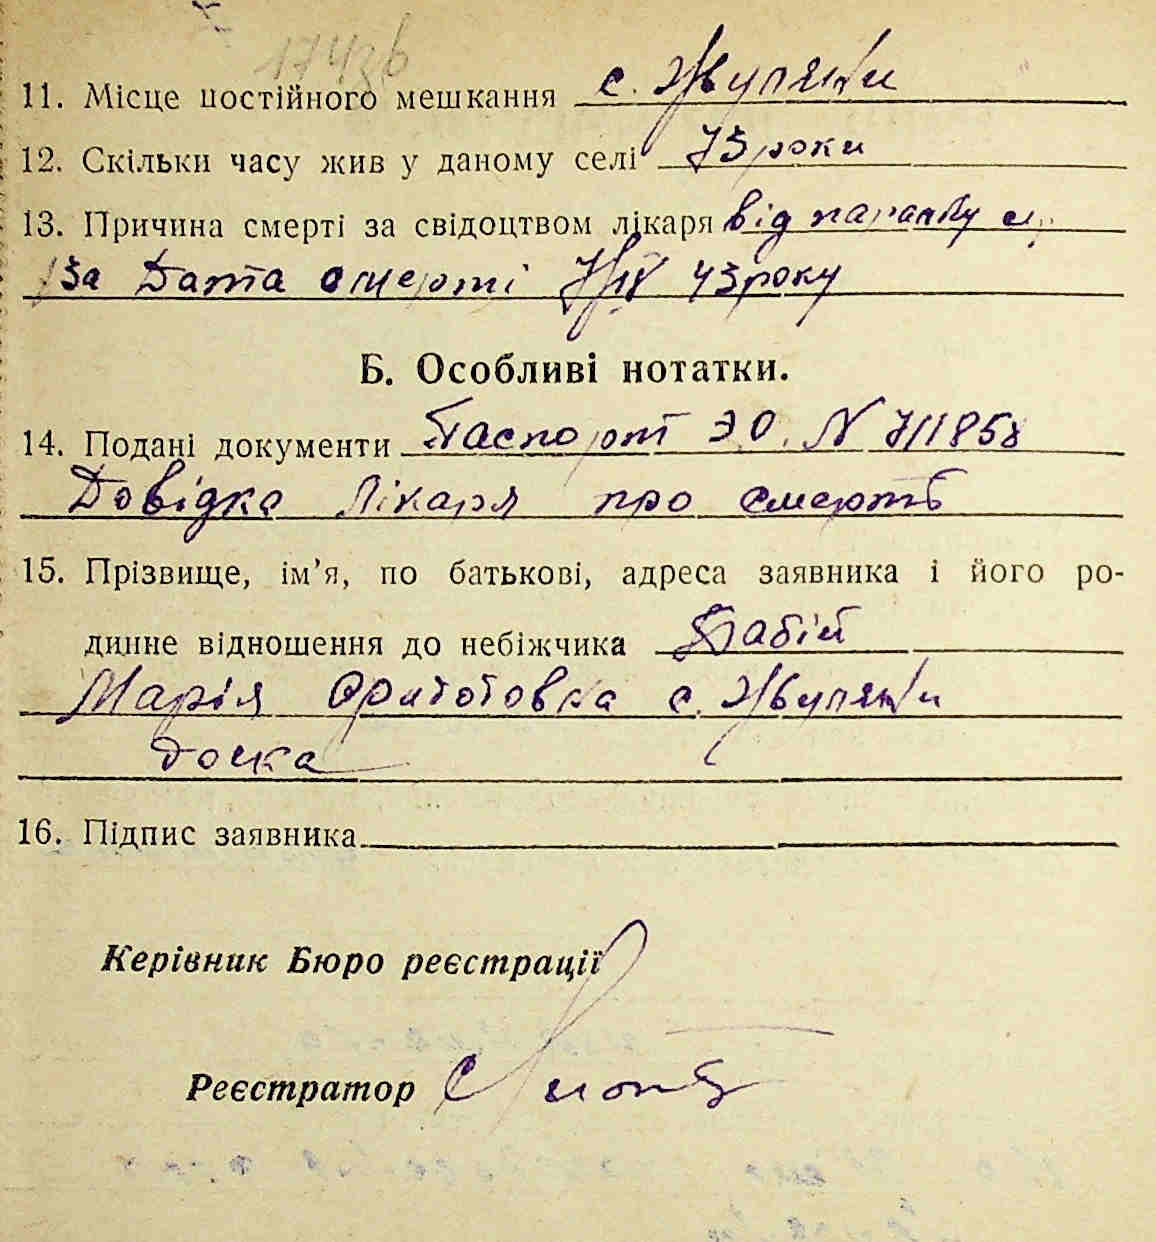 11. Місце постійного мешкання с. Жвуляки
12. Скільки часу жив у даному селі 73 роки
13. Причина смерті за свідоцтвом лікаря від
Дата смерті 7/IV 43 року
Б. Особливі нотатки.
14. Подані документи Паспорт Э.О. N 711858
Довідка Лікаря про смерть
15. Прізвище, ім’я, по батькові, адреса заявника і його ро-
динне відношення до небіжчика Бабій
Марія с. Жвуляки
дочка
16. Підпис заявника
Керівник Бюро реєстрації
Реєстратор